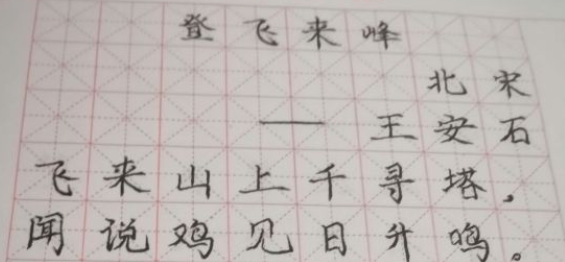 登飞来峰
北宋
——王安石
飞来山上千寻塔,
闻说鸡见日升鸣。